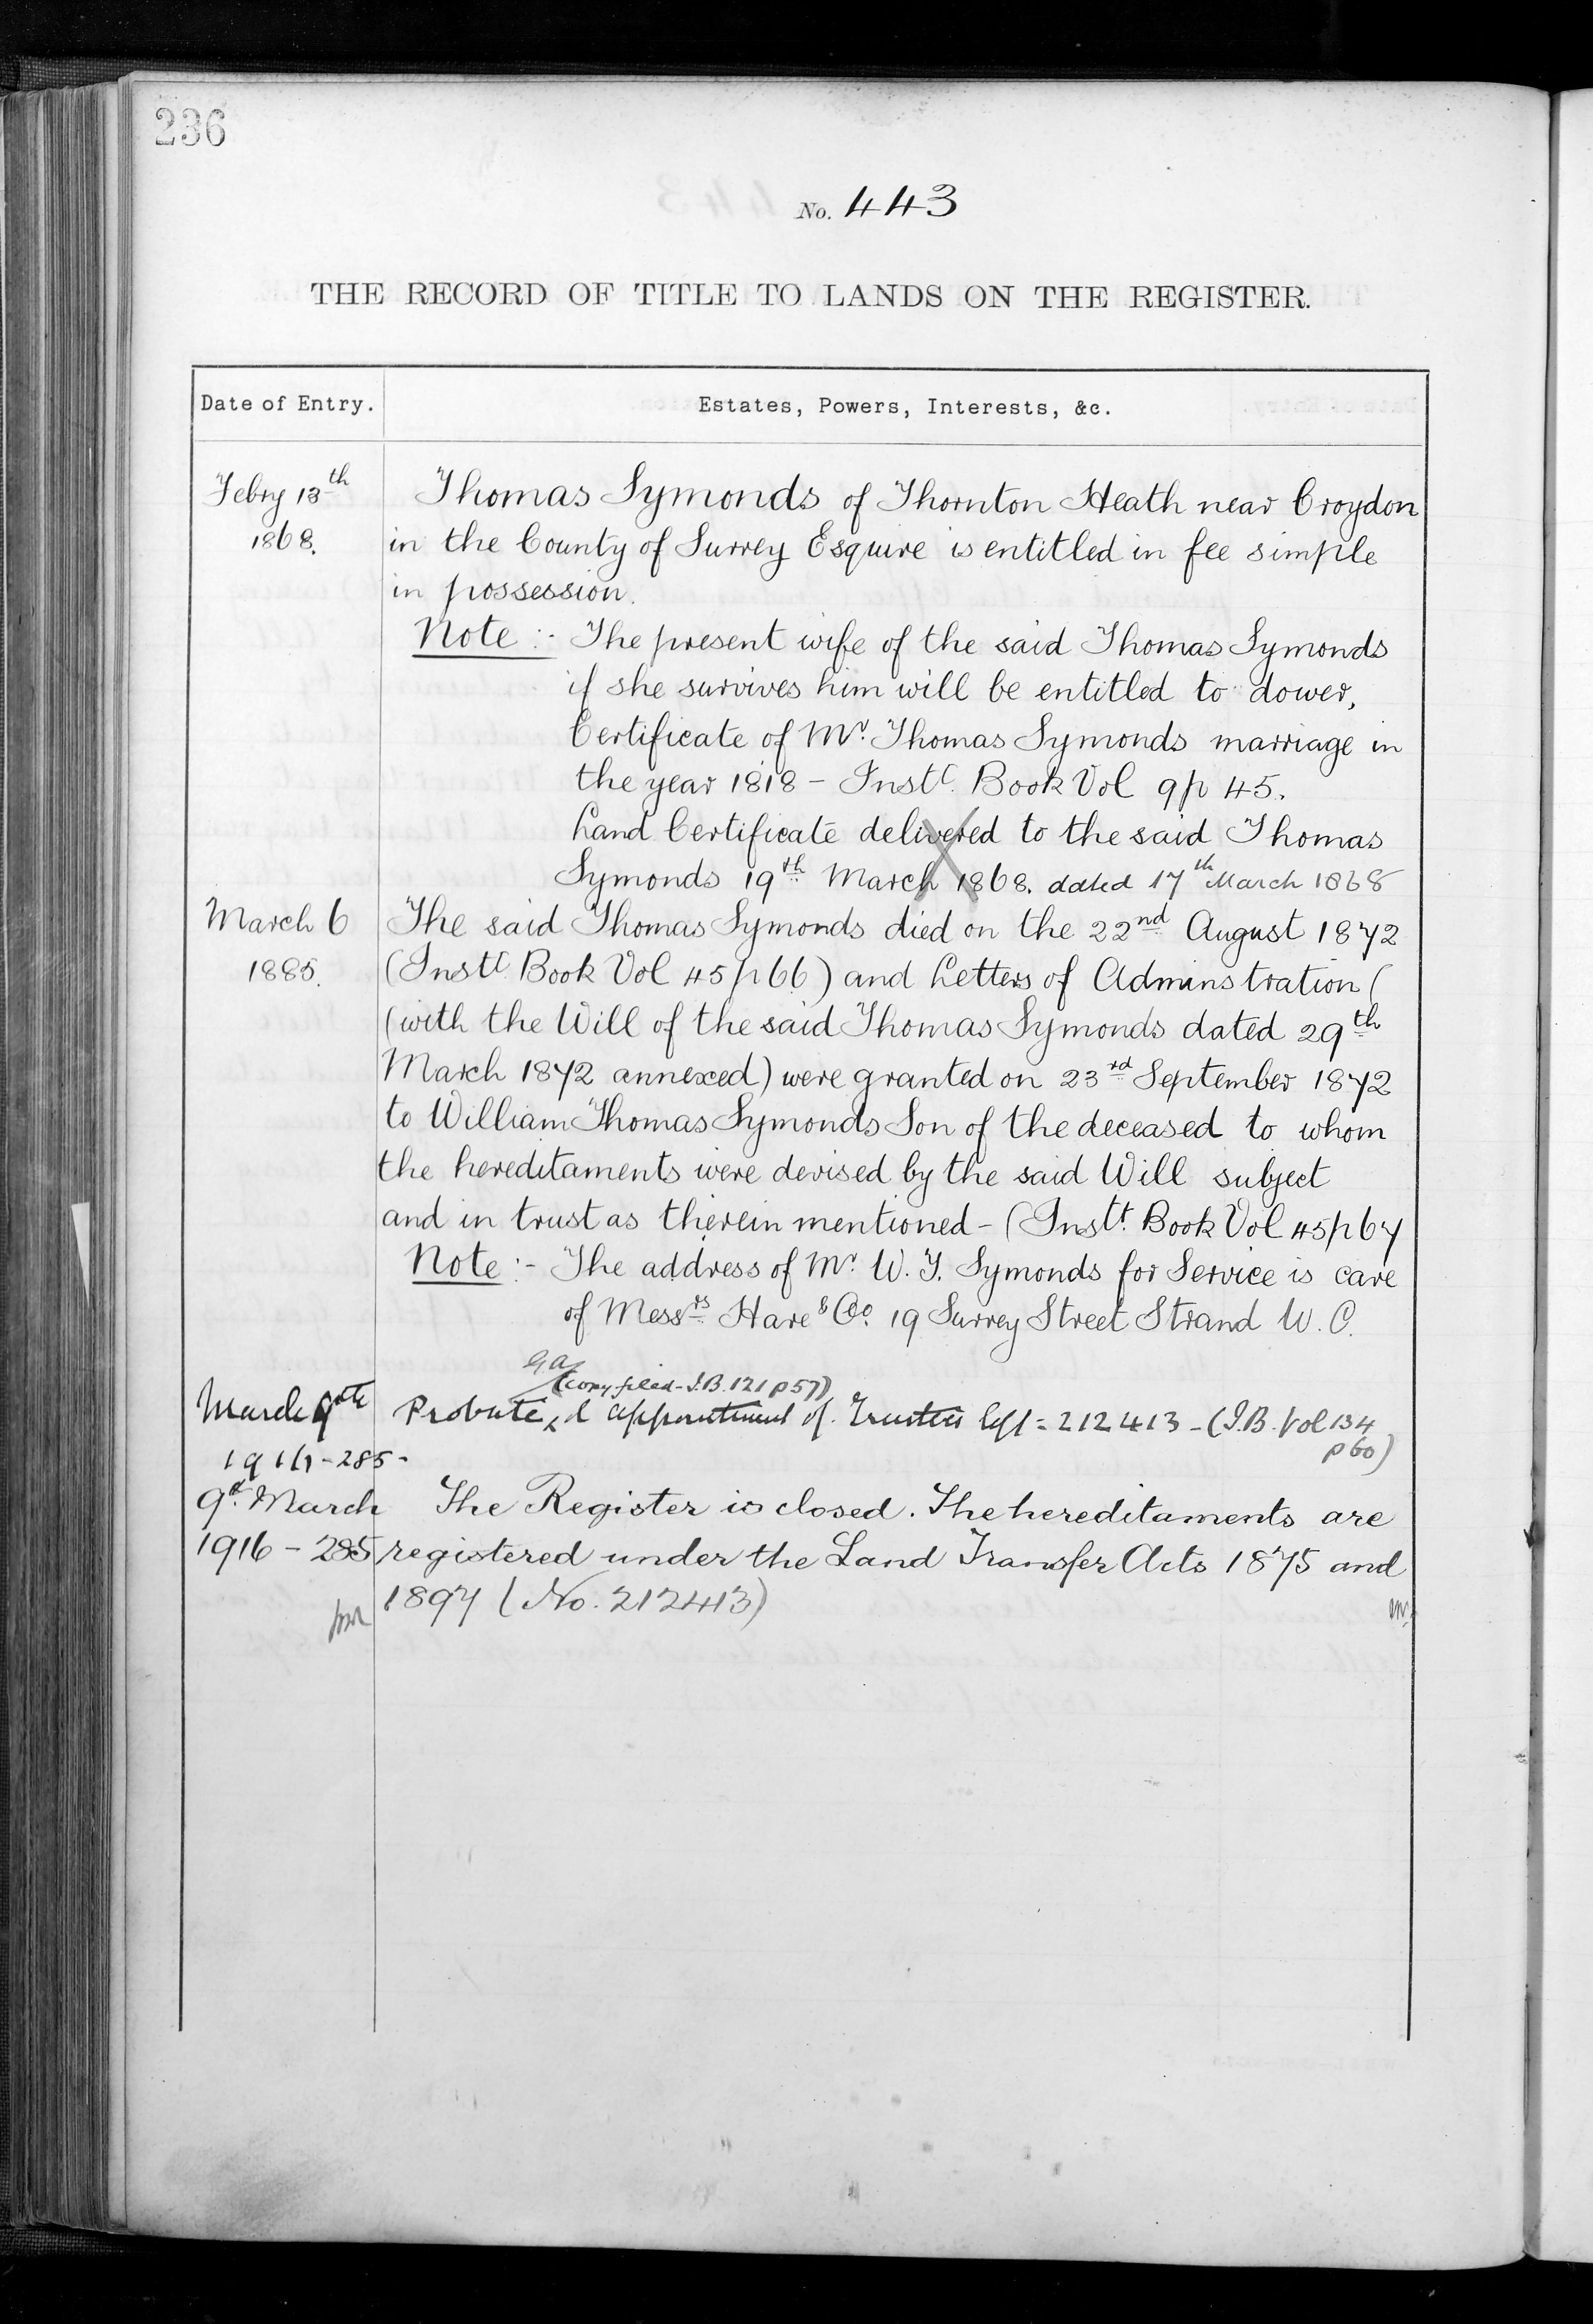 236
No. 443
THE RECORD OF TITLE TO LANDS ON THE REGISTER.
Date of Entry.
Estates, Powers, Interests, &c.
Febry 13th
1868.
Thomas Symonds of Thornton Heath near Croydon
in the County of Surrey Esquire is entitled in fee simple
in possession.
Note :- The present wife of the said Thomas Symonds
if she survives him will be entitled to dower,
Certificate of Mr. Thomas Symonds marriage in
the year 1818 - Instt. Book Vol 9 p 45.
Land Certificate delivered to the said Thomas
Symonds 19th March 1868. dated 17th March 1868
March 6
1885.
The said Thomas Symonds died on the 22nd August 1872
(Instt. Book Vol 45 p 66) and Letters of Adminstration (
(with the Will of the said Thomas Symonds dated 29th
March 1872 annexed) were granted on 23rd September 1872
to William Thomas Symonds Son of the deceased to whom
the hereditaments were devised by the said Will subject
and in trust as therein mentioned - (Instt. Book Vol 45 p 67
Note :- The address of Mr. W. T. Symonds for Service is care
of Messrs Hare & Co. 19 Surrey Street Strand W. C.
(copy filed - I.B. 121 p 57)
March 9th
1916 - 285 -
Probate, & appointment of Trustees left = 212413 - (I.B. Vol 134
p 60)
9th March
1916 - 285
The Register is closed. The hereditaments are
registered under the Land Transfer Acts 1875 and
1897 (No. 212413)